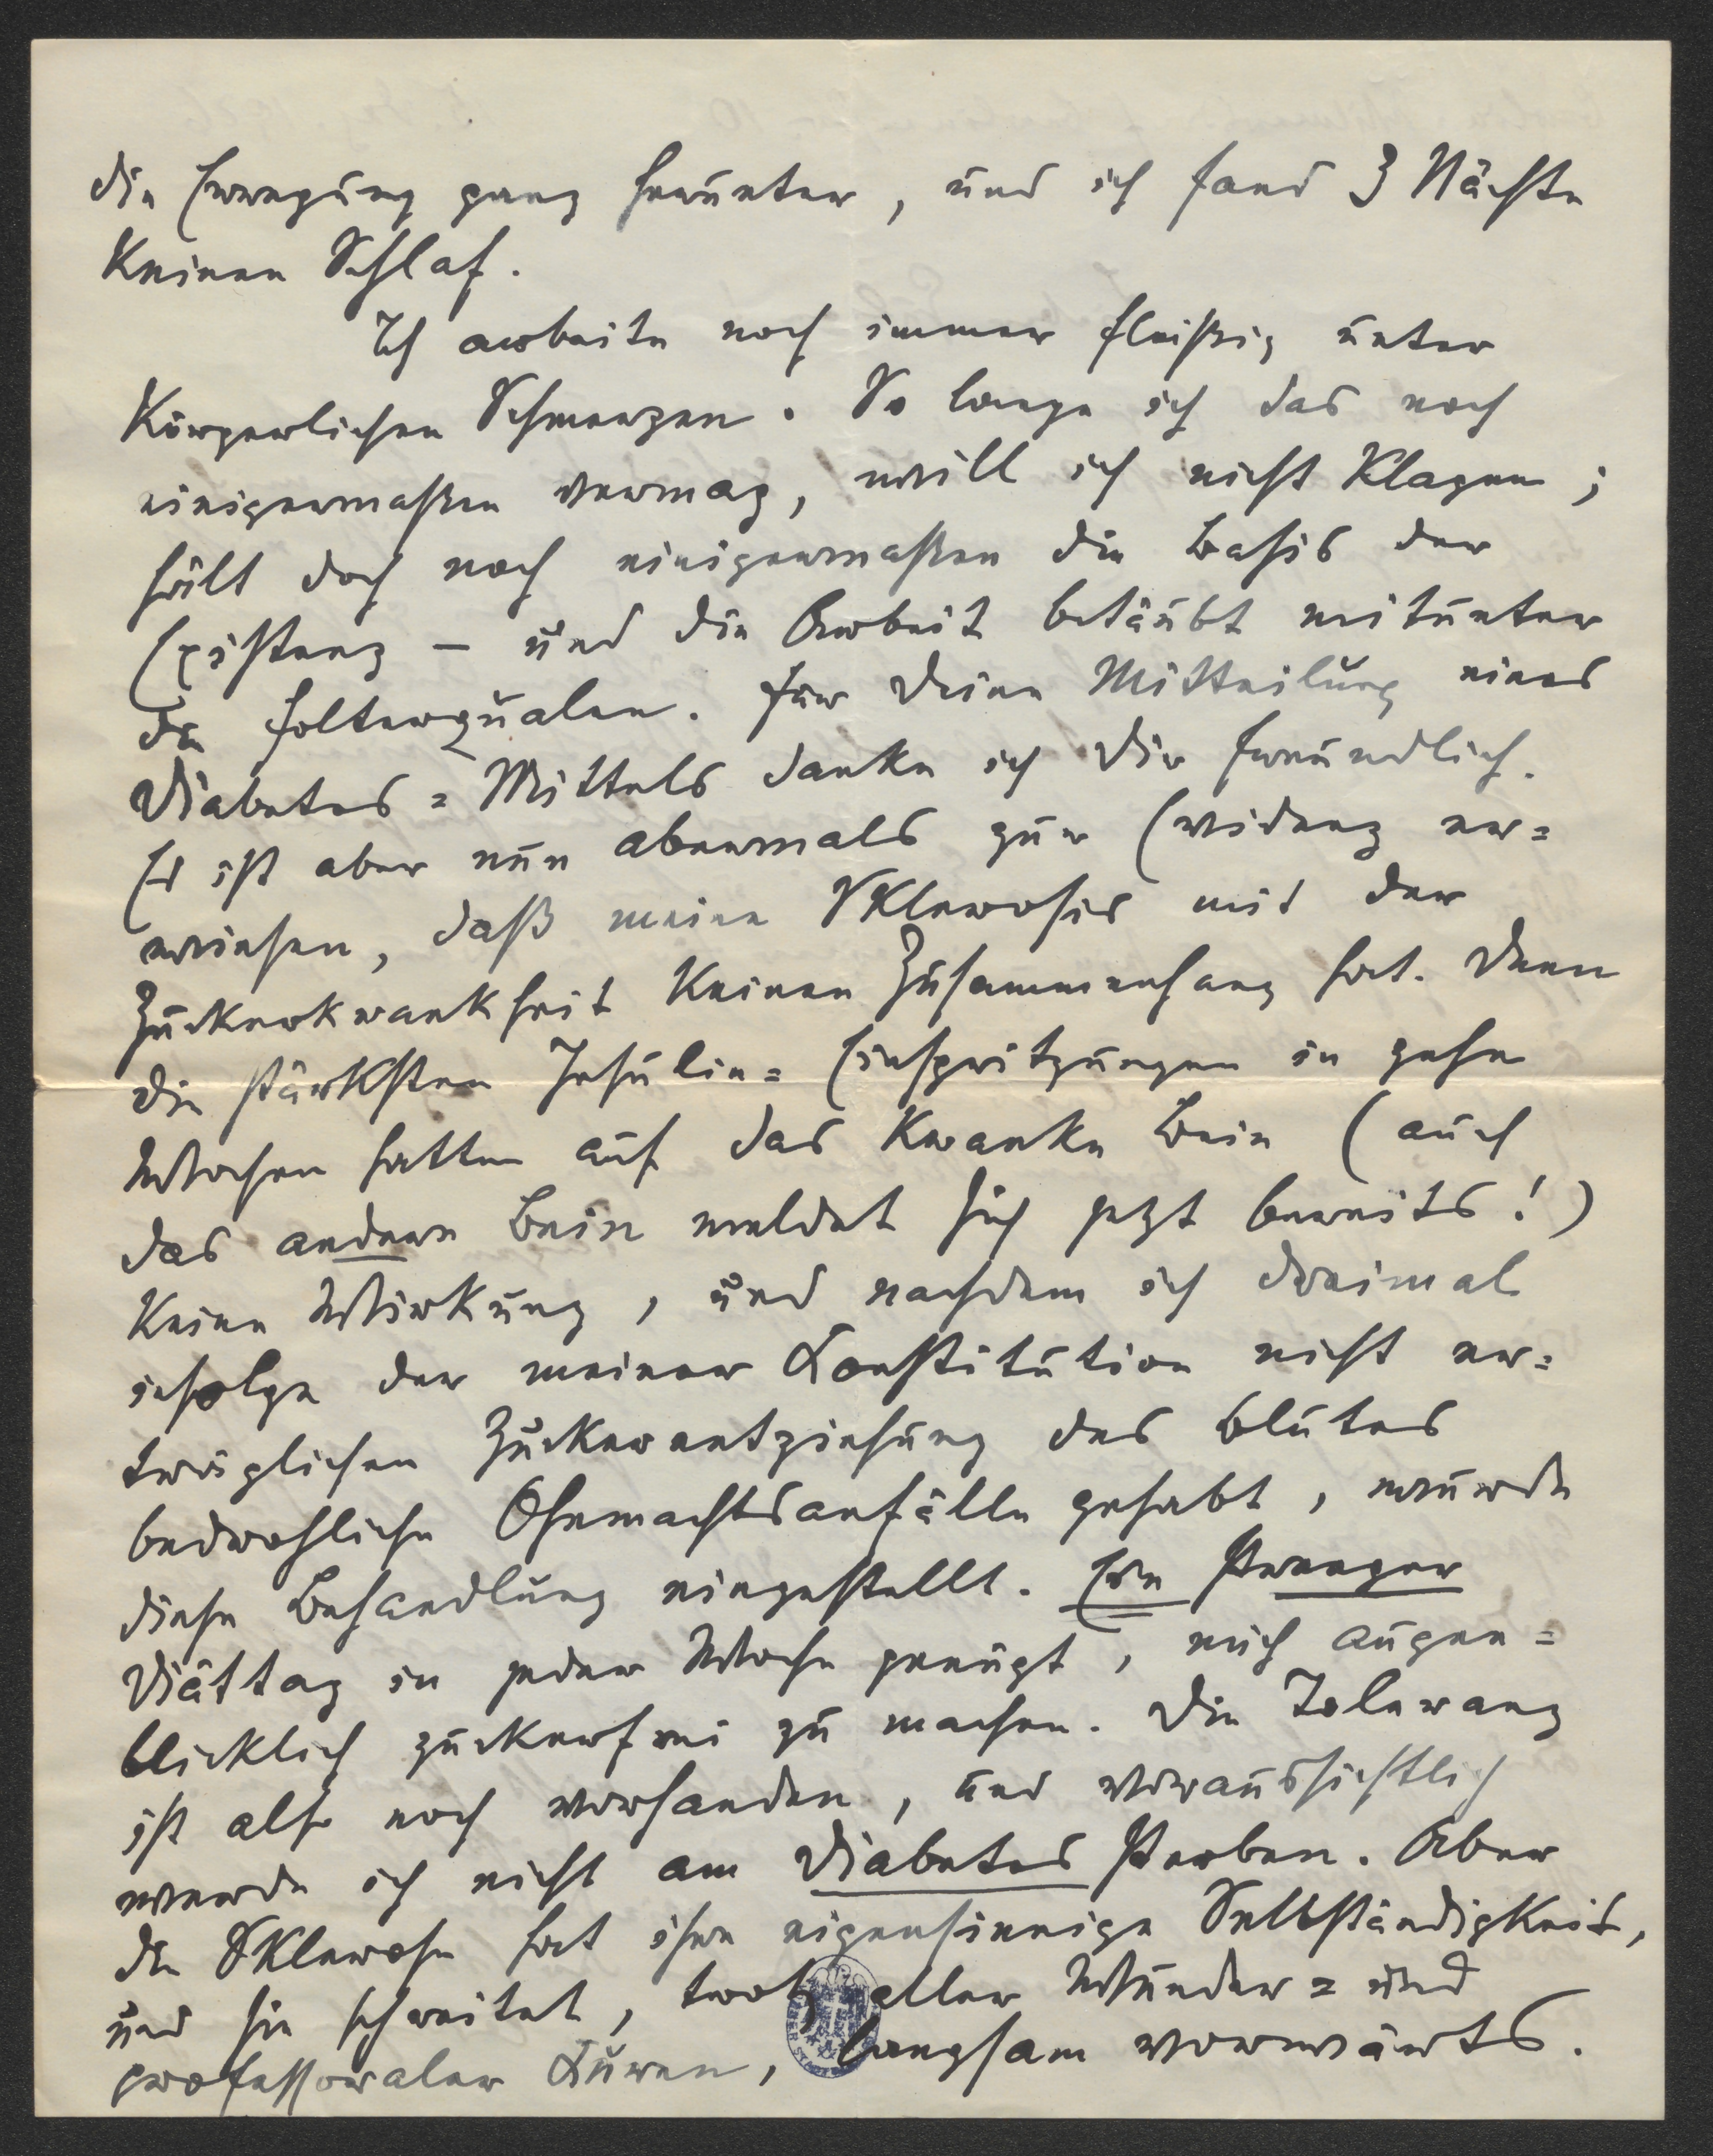 die Erregung ganz herunter, und ich fand 3 Nächte
keinen Schlaf.
Ich arbeite noch immer fleißig unter
körperlichen Schmerzen. So lange ich das noch
einigermaßen vermag, will ich nicht klagen;
hält doch noch einigermaßen die Basis der
Existenz – und die Arbeit betäubt mitunter
die Folterqualen. Für Deine Mitteilung eines
Diabetes=Mittels danke ich Dir freundlich.
Es ist aber nun abermals zur Evidenz er=
wiesen, daß meine Sklerosis mit der
Zuckerkrankheit keinen Zusammenhang hat. Denn
die stärksten Insulin=Einspritzungen in zehn
Wochen hatten auf das kranke Bein (auch
das andere Bein meldet sich jetzt bereits!)
keine Wirkung, und nachdem ich dreimal
infolge der meiner Constitution nicht er=
träglichen Zuckerentziehung des Blutes
bedrohliche Ohnmachtsanfälle gehabt, wurde
diese Behandlung eingestellt. Ein strenger
Diättag in jeder Woche genügt, mich augen=
blicklich zuckerfrei zu machen. Die Toleranz
ist also noch vorhanden, und voraussichtlich
werde ich nicht am Diabetes sterben. Aber
die Sklerose hat ihre eigensinnige Selbständigkeit,
und sie schreitet, trotz aller Wunder= und
professoraler Curen, langsam vorwärts.